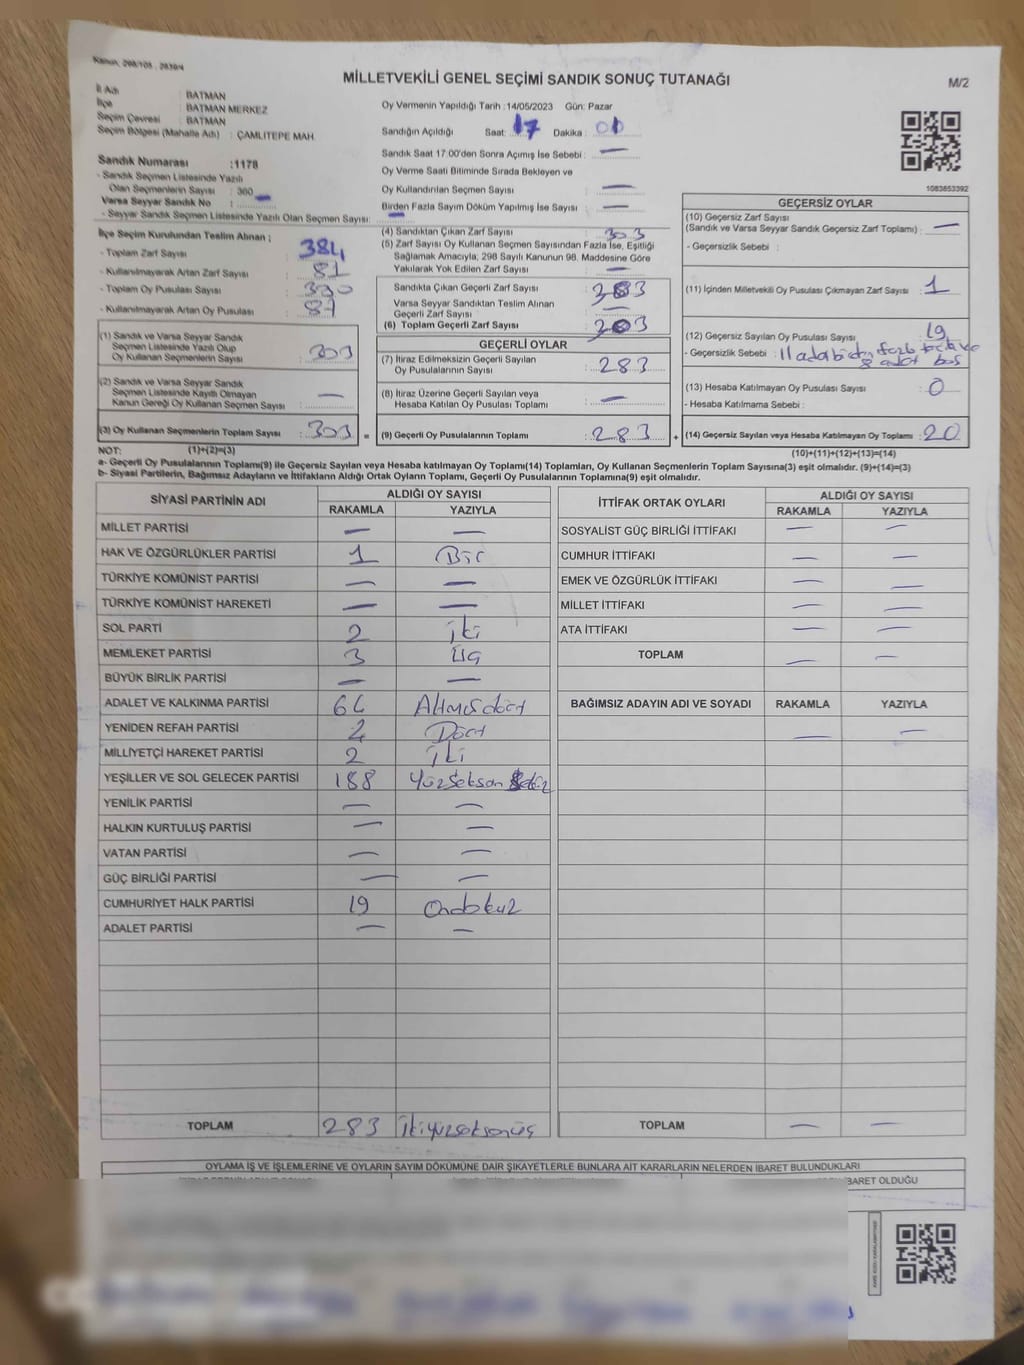 Kanun, 298/105 , 2839/4
MİLLETVEKİLİ GENEL SEÇİMİ SANDIK SONUÇ TUTANAĞI
M/2
İl Adı : BATMAN
İlçe : BATMAN MERKEZ
Seçim Çevresi : BATMAN
Seçim Bölgesi (Mahalle Adı) : ÇAMLITEPE MAH.
Sandık Numarası :1178
- Sandık Seçmen Listesinde Yazılı
Olan Seçmenlerin Sayısı : 360
Varsa Seyyar Sandık No : —
- Seyyar Sandık Seçmen Listesinde Yazılı Olan Seçmen Sayısı: —
Oy Vermenin Yapıldığı Tarih :14/05/2023 Gün: Pazar
Sandığın Açıldığı Saat: 17 Dakika : 01
Sandık Saat 17.00'den Sonra Açımış İse Sebebi : —
Oy Verme Saati Bitiminde Sırada Bekleyen ve
Oy Kullandırılan Seçmen Sayısı : —
Birden Fazla Sayım Döküm Yapılmış İse Sayısı : —
1083853392
İlçe Seçim Kurulundan Teslim Alınan ;
- Toplam Zarf Sayısı : 384
- Kullanılmayarak Artan Zarf Sayısı : 81
- Toplam Oy Pusulası Sayısı : 390
- Kullanılmayarak Artan Oy Pusulası : 87
(1) Sandık ve Varsa Seyyar Sandık
Seçmen Listesinde Yazılı Olup
Oy Kullanan Seçmenlerin Sayısı : 303
(2) Sandık ve Varsa Seyyar Sandık
Seçmen Listesinde Kayıtlı Olmayan
Kanun Gereği Oy Kullanan Seçmen Sayısı : —
(3) Oy Kullanan Seçmenlerin Toplam Sayısı : 303 =
(4) Sandıktan Çıkan Zarf Sayısı : 303
(5) Zarf Sayısı Oy Kullanan Seçmen Sayısından Fazla İse, Eşitliği
Sağlamak Amacıyla, 298 Sayılı Kanunun 98. Maddesine Göre
Yakılarak Yok Edilen Zarf Sayısı : —
Sandıkta Çıkan Geçerli Zarf Sayısı :
Varsa Seyyar Sandıktan Teslim Alınan
Geçerli Zarf Sayısı : —
(6) Toplam Geçerli Zarf Sayısı :
GEÇERLİ OYLAR
(7) İtiraz Edilmeksizin Geçerli Sayılan
Oy Pusulasının Sayısı : 283
(8) İtiraz Üzerine Geçerli Sayılan veya
Hesaba Katılan Oy Pusulası Toplamı : —
(9) Geçerli Oy Pusulalarının Toplamı : 283 +
GEÇERSİZ OYLAR
(10) Geçersiz Zarf Sayısı
(Sandık ve Varsa Seyyar Sandık Geçersiz Zarf Toplamı) : —
- Geçersizlik Sebebi :
(11) İçinden Milletvekili Oy Pusulası Çıkmayan Zarf Sayısı : 1
(12) Geçersiz Sayılan Oy Pusulası Sayısı : 19
- Geçersizlik Sebebi : 11 adabirden fazla
8 adet boş
(13) Hesaba Katılmayan Oy Pusulası Sayısı : 0
- Hesaba Katılmama Sebebi :
(14) Geçersiz Sayılan veya Hesaba Katılmayan Oy Toplamı : 20
NOT: (1)+(2)=(3)
(10)+(11)+(12)+(13)=(14)
a- Geçerli Oy Pusulalarının Toplamı(9) ile Geçersiz Sayılan veya Hesaba katılmayan Oy Toplamı(14) Toplamları, Oy Kullanan Seçmenlerin Toplam Sayısına(3) eşit olmalıdır. (9)+(14)=(3)
b- Siyasi Partilerin, Bağımsız Adayların ve İttifakların Aldığı Ortak Oyların Toplamı, Geçerli Oy Pusulalarının Toplamına(9) eşit olmalıdır.
SİYASİ PARTİNİN ADI ALDIĞI OY SAYISI
RAKAMLA YAZIYLA
MİLLET PARTİSİ — —
HAK VE ÖZGÜRLÜKLER PARTİSİ 1 Bir
TÜRKİYE KOMÜNİST PARTİSİ — —
TÜRKİYE KOMÜNİST HAREKETİ — —
SOL PARTİ 2 iki
MEMLEKET PARTİSİ 3 üç
BÜYÜK BİRLİK PARTİSİ — —
ADALET VE KALKINMA PARTİSİ 64 Altmışdört
YENİDEN REFAH PARTİSİ 4 Dört
MİLLİYETÇİ HAREKET PARTİSİ 2 iki
YEŞİLLER VE SOL GELECEK PARTİSİ 188 Yüzseksen sekiz
YENİLİK PARTİSİ — —
HALKIN KURTULUŞ PARTİSİ — —
VATAN PARTİSİ — —
GÜÇ BİRLİĞİ PARTİSİ — —
CUMHURİYET HALK PARTİSİ 19 Ondokuz
ADALET PARTİSİ — —
TOPLAM 283 ikiyüzseksenüç
İTTİFAK ORTAK OYLARI ALDIĞI OY SAYISI
RAKAMLA YAZIYLA
SOSYALİST GÜÇ BİRLİĞİ İTTİFAKI — —
CUMHUR İTTİFAKI — —
EMEK VE ÖZGÜRLÜK İTTİFAKI — —
MİLLET İTTİFAKI — —
ATA İTTİFAKI — —
TOPLAM — —
BAĞIMSIZ ADAYIN ADI VE SOYADI RAKAMLA YAZIYLA
— —
TOPLAM — —
OYLAMA İŞ VE İŞLEMLERİNE VE OYLARIN SAYIM DÖKÜMÜNE DAİR ŞİKAYETLERLE BUNLARA AİT KARARLARIN NELERDEN İBARET BULUNDUKLARI
BARET OLDUĞU